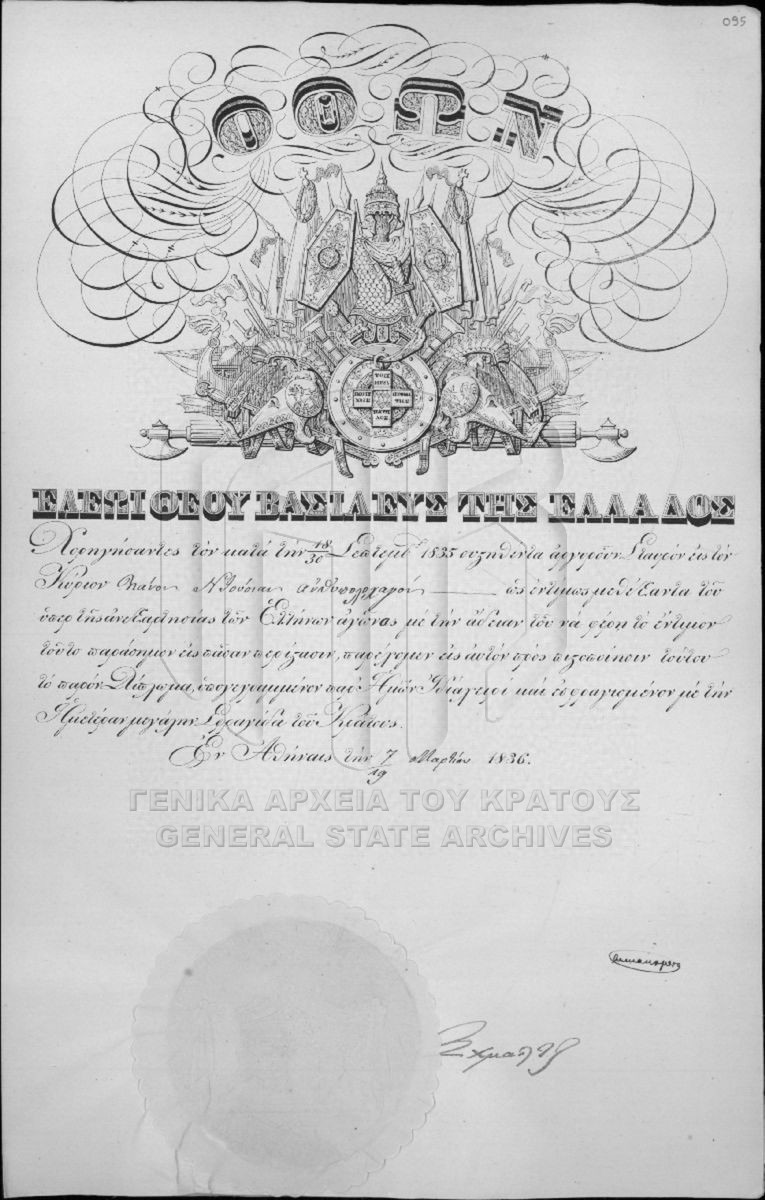 095
ΟΘΩΝ
ΕΛΕΩι ΘΕΟΥ ΒΑΣΙΛΕΥΣ ΤΗΣ ΕΛΛΑΔΟΣ
Χορηγήσαντες τὸν κατὰ τὴν 18/30 Σεπτεμβ. 1835 συστηθέντα ἀργυροῦν Σταυρὸν εἰς τὸν
Κύριον ἀνθυπολοχαγὸν ὡς ἐντίμως μεθέξαντα τοῦ
ὑπὲρ τῆς ἀνεξαρτησίας τῶν Ἑλλήνων ἀγῶνος μὲ τὴν ἄδειαν τοῦ νὰ φέρῃ τὸ ἔντιμον
τοῦτο παράσημον εἰς πᾶσαν περίστασιν, παρέχομεν εἰς αὐτὸν πρὸς πιστοποίησιν τούτου
τὸ παρὸν Δίπλωμα, ὑπογεγραμμένον παρ' Ἡμῶν Ἰδιοχείρως καὶ ἐσφραγισμένον μὲ τὴν
Ἡμετέραν μεγάλην Σφραγίδα τοῦ Κράτους.
Ἐν Ἀθήναις τὴν 7/19 Μαρτίου 1836.
ΓΕΝΙΚΑ ΑΡΧΕΙΑ ΤΟΥ ΚΡΑΤΟΥΣ
GENERAL STATE ARCHIVES